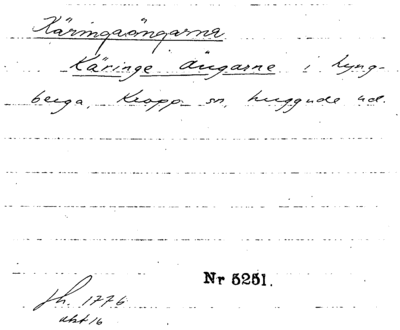 Käringaängarna
Käringe Ängarne i Lyng-
berga, Kropp sn, Luggude hd.
Nr 5251.
Sh. 1776
akt 16